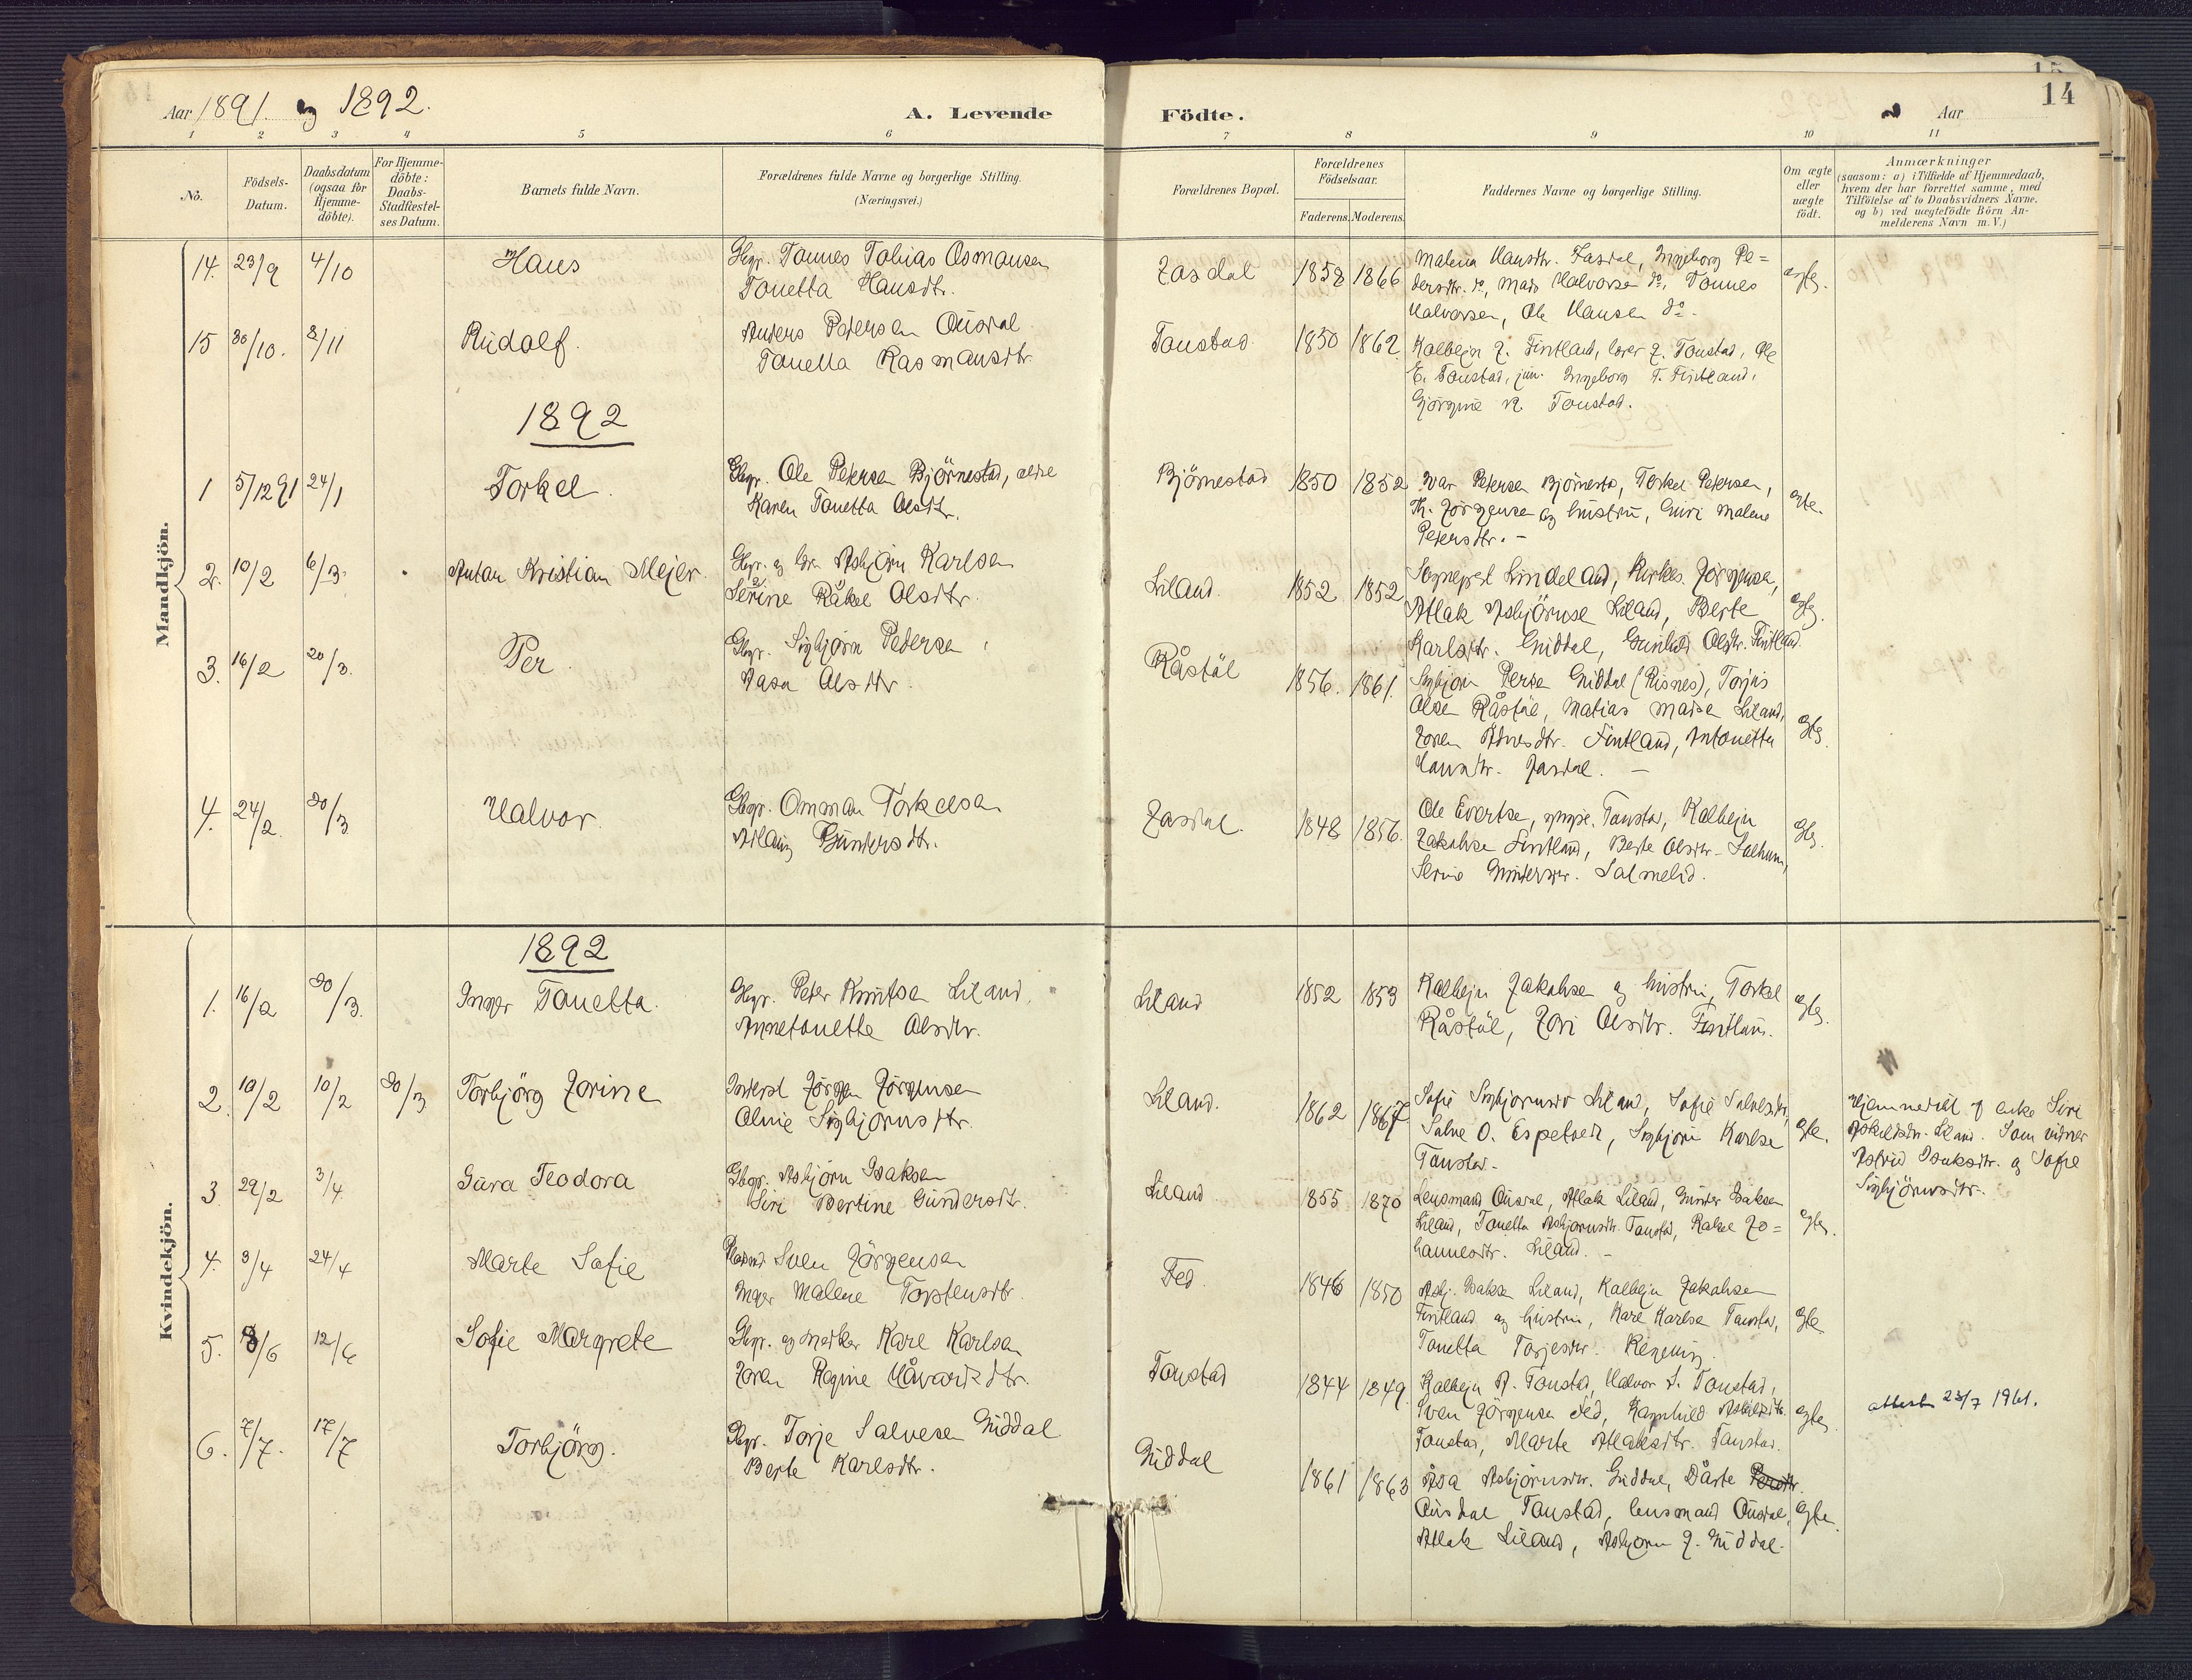 Aar 1891. og 1892.
A. Levende Födte.
Aar
14
1 2 3 4 5 6 7 8 9 10 11
No.
Födsels-Datum.
Daabsdatum (ogsaa for Hjemmedöbte).
For Hjemmedöbte: Daabs-Stadfæstelses Datum.
Barnets fulde Navn.
Forældrenes fulde Navne og borgerlige Stilling.
(Næringsvei.)
Forældrenes Bopæl.
Forældrenes Födselsaar.
Faderens. Moderens.
Faddernes Navne og borgerlige Stilling.
Om ægte eller uægte födt.
Anmærkninger
(saasom: a) i Tilfælde af Hjemmedaab,
hvem der har forrettet samme, med
Tilföielse af to Daabsvidners Navne.
og b) ved uægtefödte Börn An-
melderens Navn m.V.)
Mandkjön.
14. 23/9 4/10 Hans
Gbgr. Tönnes Tobias Osmonsen
Tonetta Hansdtr.
Josdal 1858 1866
Malena Hansdtr. Josdal, Ingeborg Pe=
dersdtr. do, Mads Halvorsen do, Tönnes
Halvorsen, Ole Hansen do.
ægte.
15 30/10. 8/11 Rudolf.
Anders Pedersen Ousdal
Tonetta Rasmusdtr.
Tonstad 1850 1862
Kolbejn J. Fintland, lærer J. Tonstad, Ole
E. Tonstad, jun. Ingeborg T. Fintland,
Gjörgine R. Tonstad.
1892
1 5/12 91 24/1 Torkel.
Gbgr. Ole Petersen Björnestad, eldre
Karen Tonetta Olsdtr.
Björnestad 1850 1852
Ivar Petersen Björnestad, Torkel Petersen,
Th. Jörgensen og hustru, Guri Malene
Petersdtr. -
ægte.
2. 10/2 6/3. Anton Kristian Mejer.
Gbgr. og Asbjörn Karlsen
Serine Råkel Olsdtr.
Liland. 1852 1852
Sognepst Lindeland, Kirkes. Jörgensen,
Atlak Asbjörnsen Liland, Berte
Karlsdtr. Guddal, Gunhild Olsdtr. Fintland.
ægte.
3. 16/2 20/3. Per.
Gbgr. Sigbjörn Pedersen
Aasa Olsdtr.
Råstöl 1856. 1861.
Sigbjörn Persen Guddal (Risnes), Torjus
Olsen Råstöl, Matias Madsen Liland,
Joren Fintland, Antonetta
Hansdtr. Josdal. -
ægte.
4. 24/2. 20/3 Halvor.
Gbgr. Ommon Torkelsen
Gundersdtr.
Josdal. 1848 1856.
Ole Evertsen, Tonstad, Kolbejn
Jakobsen Fintland, Berte Olsdtr.
Serine Gundersdtr. Salmelid.
ægte.
Kvindekjön.
1892
1. 16/2 20/3. Inger Tonetta.
Gbgr. Peter Knutsen Liland,
Annetonette Olsdtr.
Liland 1852 1853
Kolbejn Jakobsen og hustru, Torkel
Råstöl, Jori Olsdtr. Fintland.
ægte.
2. 10/2 10/2 20/3 Torbjörg Jorine
Inderst Jörgen Jörgensen
Oline Sigbjörnsdtr.
Liland. 1862 1867
Sofie Sigbjörnsdtr Liland, Sofie Salvesdtr,
Salve O. Espetvedt, Sigbjörn Karlsen
Tonstad.
ægte.
Hjemmedöbt af enke Siri
Liland. Som vidner
Astrid Isaksdtr. og Sofie
Sigbjörnsdtr.
3 29/2 3/4. Gura Teodora
Gbgr. Asbjörn Isaksen
Siri Bertine Gundersdtr.
Liland 1855 1870
Lensmand Ousdal, Atlak Liland, Gunder Isaksen
Liland, Tonetta Asbjörnsdtr. Tonstad, Rakel Jo=
hannesdtr. Liland. -
ægte.
4. 3/4 24/4 Marte Sofie
Pladsmd Sven Jörgensen
Inger Malene Torstensdtr.
Fed. 1846 1850
Asbj. Isaksen Liland, Kolbejn Jakobsen
Fintland og hustru, Karl Karlsen Tonstad,
Tonetta Torjesdtr.
ægte
5. 8/6 12/6 Sofie Margrete
Gbgr. og snedker Karl Karlsen
Joren Regine Håvardsdtr.
Tonstad 1844 1849.
Kolbejn R. Tonstad, Halvor S. Tonstad,
Sven Jörgensen Fed, Ragnhild
Tonstad, Marte Atlaksdtr. Tonstad.
ægte
attest 23/7 1961.
6. 7/7. 17/7 Torbjörg.
Gbgr. Torje Salvesen Guddal
Berte Karlsdtr.
Guddal 1861 1863
Åsa Asbjörnsdtr. Guddal, Dårte
Ousdal Tonstad, lensmand Ousdal,
Atlak Liland, Asbjörn J. Guddal.
ægte.